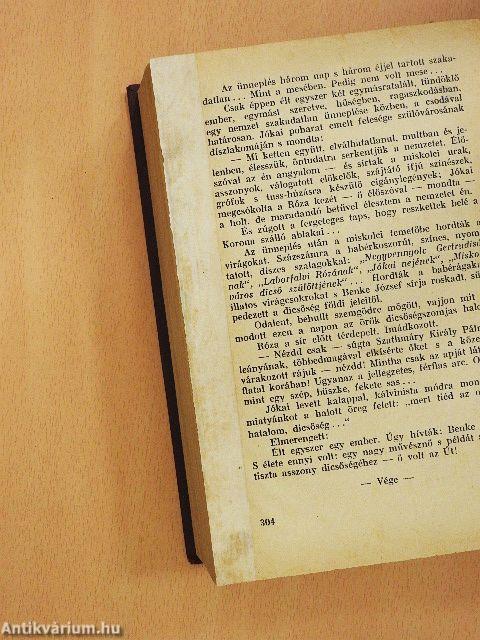 Az ünneplés három nap s három éjjel tartott szaka-
datlan... Mint a mesében. Pedig nem volt mese...
Csak éppen élt egyszer két egymásratalált, tündöklő
ember, egymást szeretve, hűségben, ragaszkodásban,
egy nemzet szakadatlan ünneplése közben, a csodával
határosan. Jókai poharat emelt felesége szülővárosának
díszlakomáján s mondta:
— Mi ketten együtt, elválhatatlanul, multban és je-
lenben, élesszük, öntudatra serkentjük a nemzetet. Élő-
szóval az én angyalom — és sírtak a miskolci urak,
asszonyok, válogatott előkelők, szájtátó ifjú színészek,
grófok s tuss-húzásra készülő cigánylegények; Jókai
megcsókolta a Róza kezét — ő élőszóval — mondta —
a holt, de marandandó betüvel élesztem a nemzetet én.
És zúgott a fergeteges taps, hogy reszkettek belé a
Korona szálló ablakai...
Az ünneplés után a miskolci temetőbe hordták a
virágokat. Százszámra a babérkoszorút, színes, nyom
tatott, díszes szalagokkal: „Negypennyolc Gertrudisá
nak", „Laborfalvi Rózának", „Jókai nejének", „Misko
város dicső szülöttjének"... Hordták a babérágaka
illatos virágcsokrokat s Benke József sírja roskadt, sü
pedezett a dicsőség földi jeleitől.
Odalent, behullt szemgödre mögött, vajjon mit
modott ezen a napon az örök dicsőségszomjas halo
Róza a sír előtt térdepelt. Imádkozott.
— Nézdd csak — súgta Szathmáry Király Páln
leányának, többedmagával elkísérte őket s a köze
várakozott rájuk — nézdd! Mintha csak az apját lát
flatal korában! Ugyanaz a jellegzetes, férfias arc. O
mint egy szép, büszke, fekete sas...
Jókai levett kalappal, kálvinista módra mon
miatyánkot a halott öreg felett: „mert tiéd az o
hatalom, dicsőség..."
Elmerengett:
Élt egyszer egy ember. Úgy hívták: Benke
S élete ennyi volt: egy nagy művésznő s példát s
tiszta asszony dicsőségéhez — ő volt az Út!
— Vége —
304
Antikvárium.hu